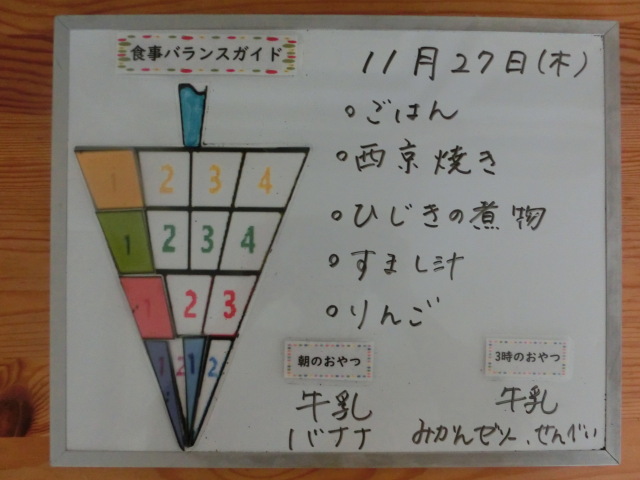 食事バランスガイド
11月27日(木)
○ごはん
○西京焼き
○ひじきの煮物
○すまし汁
○りんご
1 2 3 4
1 2 3 4
1 2 3
1 2 1 2
朝のおやつ
牛乳
バナナ
3時のおやつ
牛乳
みかんゼリー、せんべい